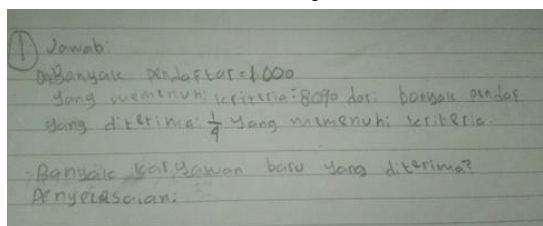 ① Jawab:
Banyak pendaftar = 1.000
Yang memenuhi kriteria = 80% dari banyak pendaf
Yang diterima: 1/4 Yang memenuhi kriteria
- Banyak karyawan baru yang diterima?
Penyelesaian: